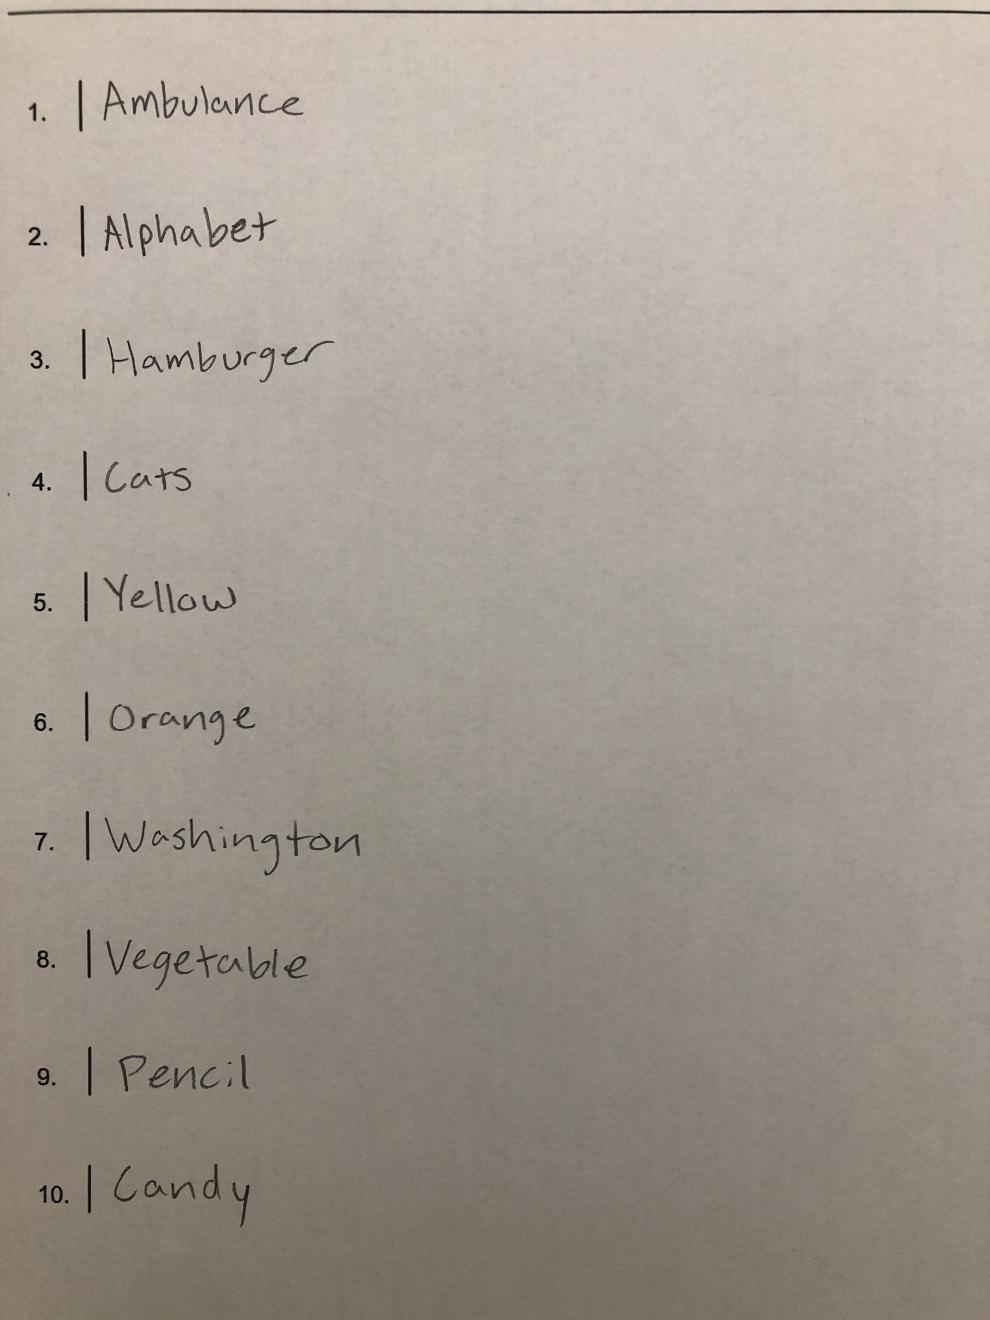 1. | Ambulance
2. | Alphabet
3. | Hamburger
4. | Cats
5. | Yellow
6. | Orange
7. | Washington
8. | Vegetable
9. | Pencil
10. | Candy